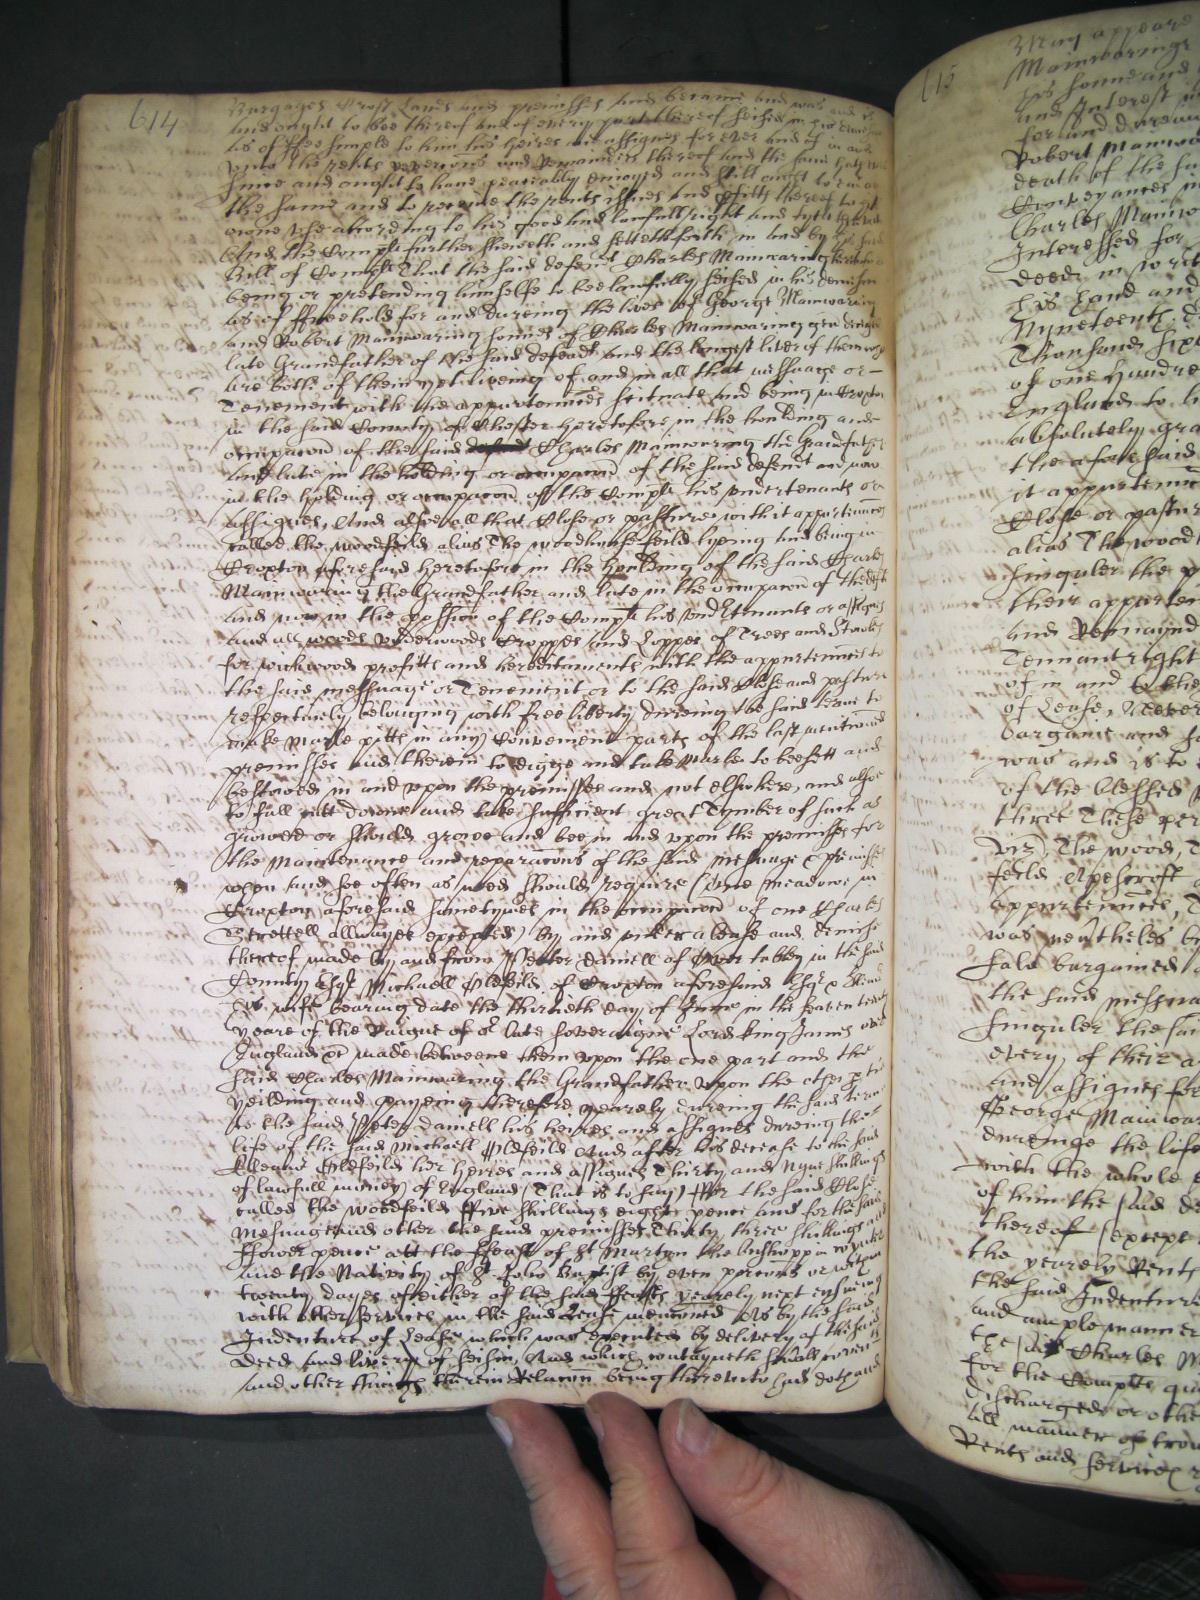 614
Burgages Croft Lands and premisses and became and was and is
and ought to bee thereof and of every part thereof seized in his demesne
as of ffee simple to him his heires and assignes for ever and of in and
unto the rents reverions and Remainders thereof and the same hath ever
since and ought to have peaceably enioyed and still ought to enioy
the same and to receive the rents issues and profitts thereof to his
owne use according to his good and lawfull right and tytle thereunto
And the Compl^t further sheweth and setteth forth in and by his said
Bill of Compl^t That the said defend^t Charles Mainwaring heretofore
being or pretending himselfe to bee lawfully seized in his demesne
as of ffreehold for and dureing the lives of George Mainwaring
and Robert Mainwaring sonnes of Charles Mainwaring gen deceased
late Grandfather of the said defend^t and the longest liver of them who
are both of them yet liveing of and in all that messuage or
Tenement with the appurtennces scituate and being in Croxton
in the said County of Chester heretofore in the houlding and
occupacon of the said Charles Mainwaring the Grandfather
and late in the holding or occupacon of the said defend^t and now
in the holding or occupacon of the Compl^t his undertenants or
assignes, And alsoe all that Close or pasture with it appurtennces
called the woodfeilds alias The woodhouse feild lyeing and being in
Croxton aforesaid heretofore in the houlding of the said Charles
Mainwaring the Grandfather and late in the occupacon of the def^t
and now in the possion of the Compl^t his undtenants or assignes
and all woods underwoods Croppes and Loppes of Trees and Stowles
for win woods profitts and hereditaments with the appurtennces to
the said messuage or Tenement or to the said Close and pasture
respectively belonging with free liberty dureing the said terme to
make Marle pitts in any Convenient parts of the last mentioned
premisses and therein to digge and take Marle to bee sett and
bestowed in and upon the premisses and not elswhere, and alsoe
to fall cutt downe and take sufficient great Tymber of such as
growed or should growe and bee in and upon the premisses for
the Maintenance and reparacons of the said messuage & premisses
when and soe often as need should require (One meadowe in
Croxton aforesaid sometymes in the occupacon of one Charles
Strettell allwayes excepted) by and under a lease and demise
thereof made by and from Peeter Daniell of Over tabley in the said
County Esq^r Michaell Oldfeild of Croxton aforesaid Esq^r & Ellenor
his wife bearing date the thirtieth day of June in the seaventeenth
yeare of the Raigne of o^r late sovereigne Lord King James over
England &c made betweene them upon the one part and the
said Charles Mainwaring the Grandfather upon the other p^te
yeilding and payeing therefore yearely dureing the said terme
to the said Peter Daniell his heires and assignes dureing the
life of the said Michaell Oldfeild And after his decease to the said
Elleanor Oldfeild her heires and assignes Thirty and nyne shillings
of lawfull money of England (That is to say) ffor the said Close
called the woodfeilds ffive shillings eight pence and for the said
Messuage and other the said premisses Thirty three shillings and
ffower pence att the ffeasts of S^t Martyn the Bishopp in wynter
and the Nativity of S^t John Baptist by even porcons or within
twenty dayes of either of the said ffeasts yearely next ensueing
with other services in the said Lease menconed As by the said
Indenture of Lease which was executed by delivery of the said
Deed and livery of seisin, And which contayneth severall covents
and other things therein Relacon being thereunto had doth and
615
May appeare
Mainwaringe
his sonne and
and Interest in
for and dureing
Robert Mainwaring
death of the sa
Conveyances in
Charles Mainwa
Interessed for
deede in writ
his hand and
Nyneteenth d
Thousand sixe
of one hundre
England to h
absolutely gra
the aforesaid
it appurtennc
Close or pastur
alias The wood
singuler the p
their appurten
and Remaynd
Tennantright
of in and to the
of Lease, Never
bargaine and sa
was and is to
of the blessed
three These per
viz^t, The wood, T
feild Apescroft
appurtennces, T
was nevtheles by
sale bargained
the said messua
singuler the sa
every of their a
and assignes for
George Mainwar
dureinge the life
with the whole
of him the said de
thereof (except
the yearely Rents
the said Indenture
and ample manner
the said Charles M
for the Complts qu
discharged or othe
all manner of trou
Rents and services